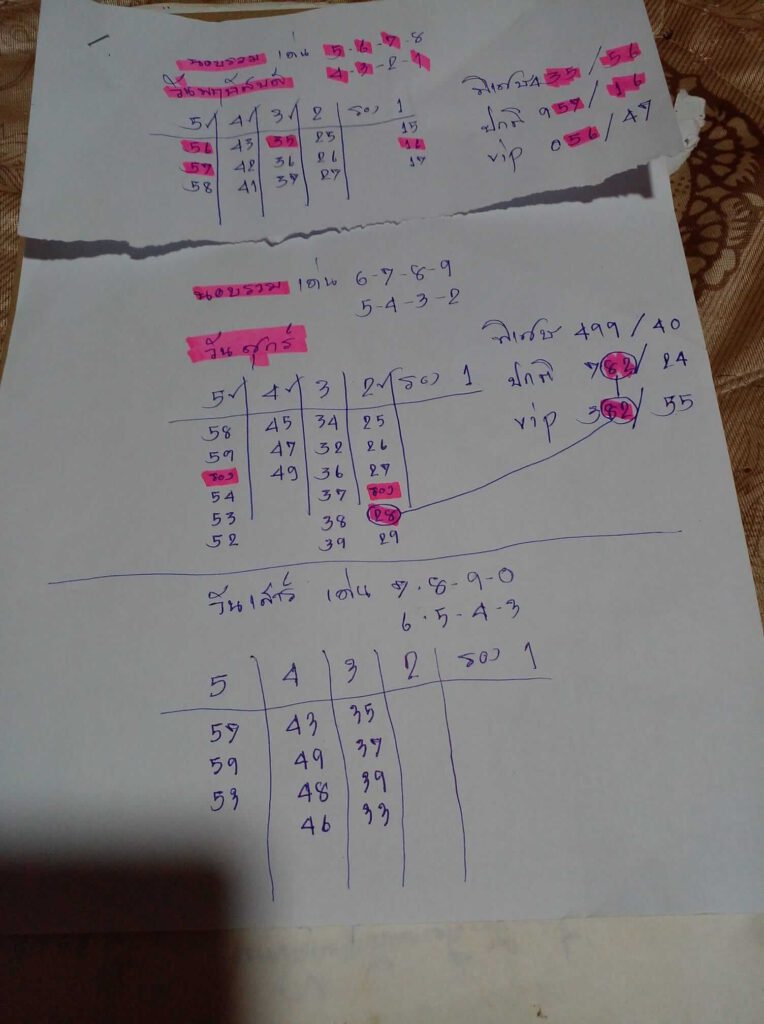 ฮานอยรวม เด่น 5-6-7-8
4-3-2-1
วันพฤหัสบดี
พิเศษ 435/56
ปกติ 957/16
vip 056/47
5 4 3 2 รอง 1
56 43 35 25 15
57 42 36 26 16
58 41 37 27 17
เด่น 6-7-8-9
5-4-3-2
วันศุกร์
พิเศษ 499/40
ปกติ 782/24
vip 382/35
5 4 3 2 รอง 1
58 45 34 25
59 47 32 26
รอง 49 36 27
54 37 รอง
53 38 28
52 39 29
วันเสาร์ เด่น 7-8-9-0
6-5-4-3
5 4 3 2 รอง 1
57 43 35
59 49 37
53 48 39
46 33